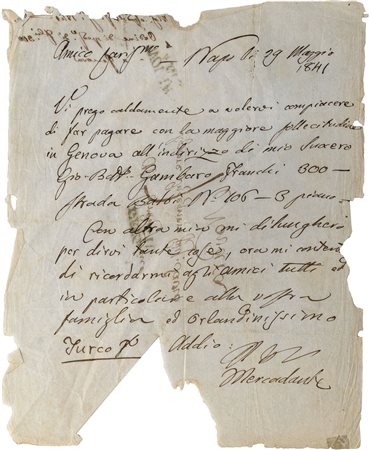 Amico cariss.mo Napoli 29 Maggio
1841
Vi prego caldamente a volervi compiacere
di far pagare con la maggiore sollecitudine
in Genova all'indirizzo di mio Suocero
Gio. Batt. Gambaro Franchi 300 —
Strada N.º 106 - 3 piano -
Con altra mia mi dilungherò
per dirvi tante cose, ora mi contento
di ricordarmi agli amici tutti ed
in particolare alla vostra
famiglia ed Orlandinissimo
Turco Addio:
Mercadante